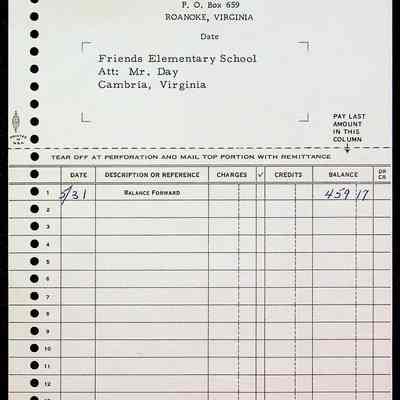 P. O. Box 659
ROANOKE, VIRGINIA
Date
Friends Elementary School
Att: Mr. Day
Cambria, Virginia
PAY LAST
AMOUNT
IN THIS
COLUMN
TEAR OFF AT PERFORATION AND MAIL TOP PORTION WITH REMITTANCE
DATE DESCRIPTION OR REFERENCE CHARGES ✓ CREDITS BALANCE DR CR
1 5/31 BALANCE FORWARD 459 17
2
3
4
5
6
7
8
9
10
11
12